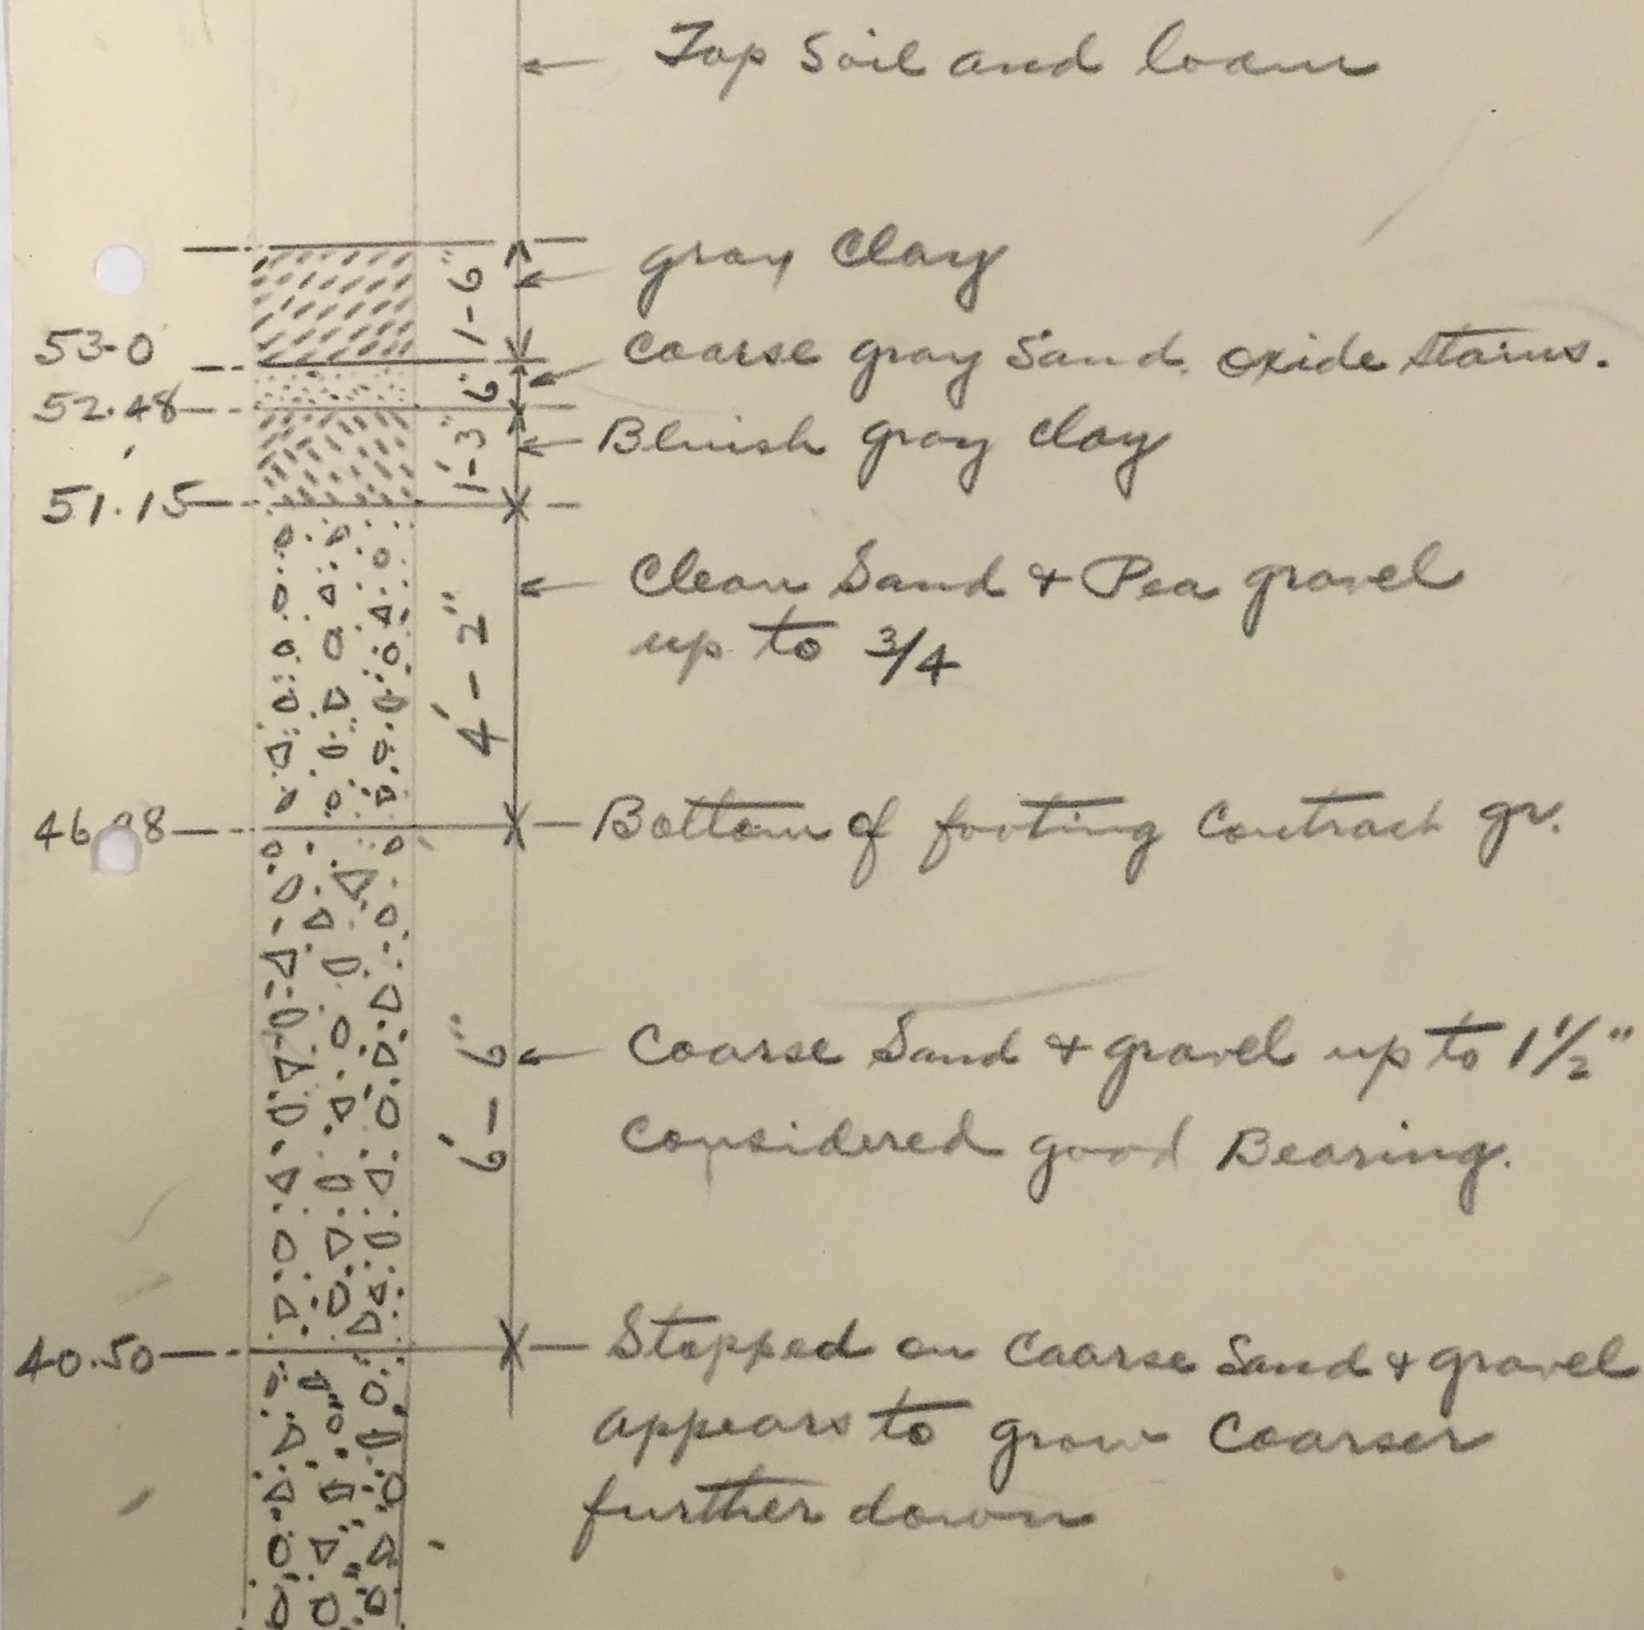 Top Soil and loam
gray Clay
1'-6"
53.0
Coarse gray Sand. oxide stains.
6"
52.48
Bluish gray clay
1'-3"
51.15
Clean Sand & Pea gravel
up to 3/4
4'-2"
Bottom of footing Contract gr.
Coarse Sand & gravel up to 1 1/2"
Considered good Bearing.
6'-6"
40.50
Stopped on Coarse Sand & gravel
appears to grow Coarser
further down